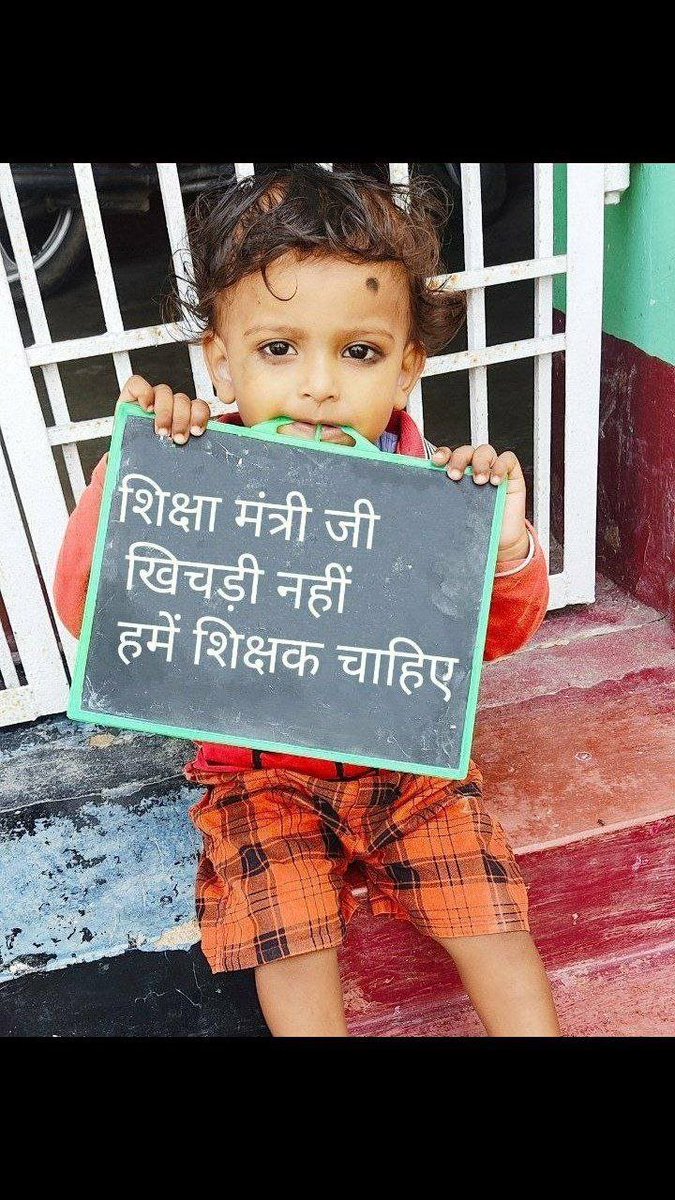 शिक्षा मंत्री जी
खिचड़ी नहीं
हमें शिक्षक चाहिए